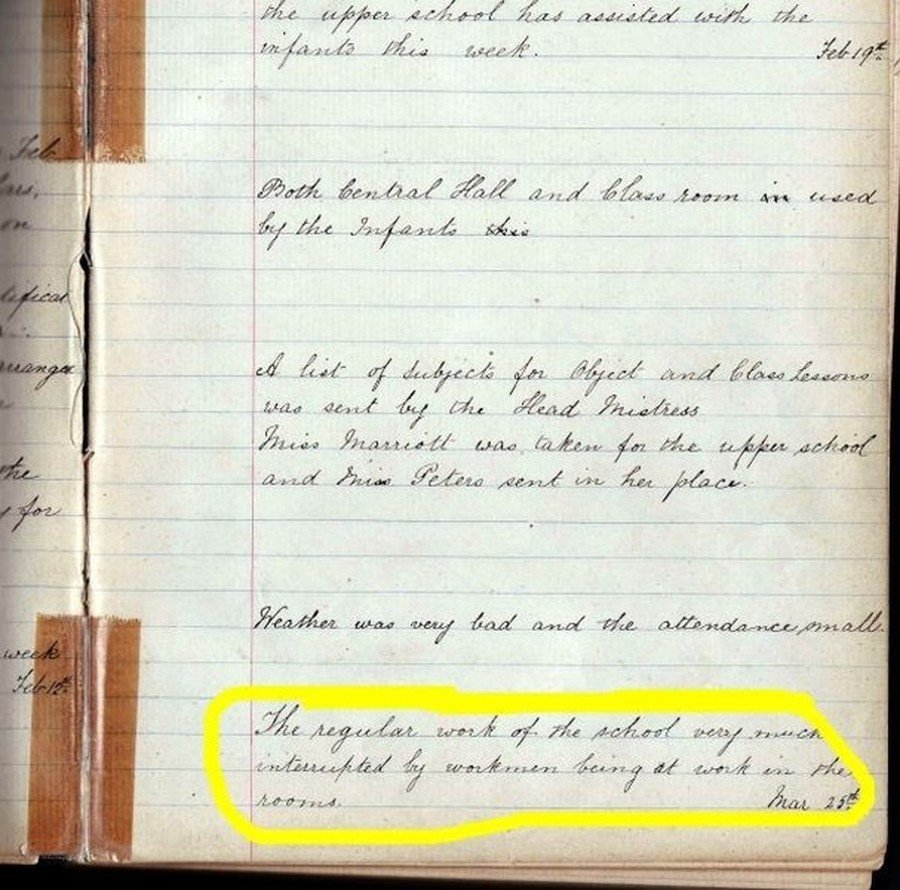 the upper school has assisted with the
infants this week. Feb 19th.
Feb
on
tifical
the
for
week
Feb 12th
Both Central Hall and Class room in used
by the Infants this
A list of subjects for Object and Class Lessons
was sent by the Head Mistress
Miss Marriott was taken for the upper school
and Miss Peters sent in her place.
Weather was very bad and the attendance small.
The regular work of the school very much
interrupted by workmen being at work in the
rooms. Mar 25th